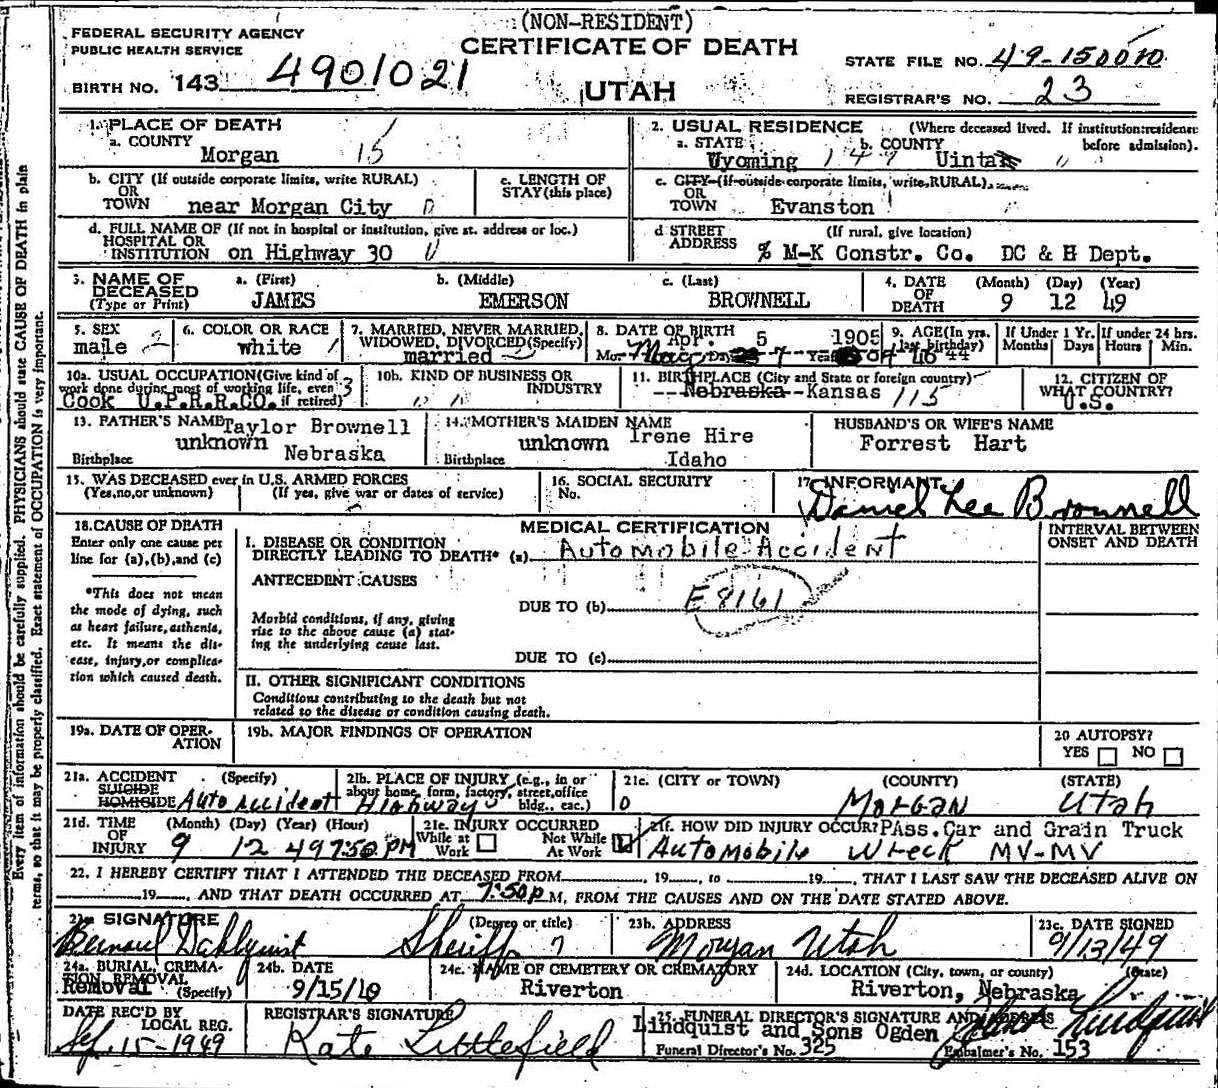 (NON-RESIDENT)
FEDERAL SECURITY AGENCY
PUBLIC HEALTH SERVICE
CERTIFICATE OF DEATH
STATE FILE NO. 49-150010
BIRTH NO. 143 4901021
UTAH
REGISTRAR'S NO. 23
Every item of information should be carefully supplied. PHYSICIANS should state CAUSE OF DEATH in plain
terms, so that it may be properly classified. Exact statement of OCCUPATION is very important.
1. PLACE OF DEATH
a. COUNTY
Morgan 15
2. USUAL RESIDENCE (Where deceased lived. If institution: residence before admission).
a. STATE b. COUNTY
Wyoming 149 Uintah
b. CITY (If outside corporate limits, write RURAL)
OR
TOWN near Morgan City
c. LENGTH OF
STAY (this place)
c. CITY (If outside corporate limits, write RURAL)
OR
TOWN Evanston
d. FULL NAME OF (If not in hospital or institution, give st. address or loc.)
HOSPITAL OR
INSTITUTION on Highway 30
d STREET (If rural, give location)
ADDRESS % M-K Constr. Co. DC & H Dept.
3. NAME OF
DECEASED
(Type or Print)
a. (First) b. (Middle) c. (Last)
JAMES EMERSON BROWNELL
4. DATE (Month) (Day) (Year)
OF
DEATH 9 12 49
5. SEX
male 2
6. COLOR OR RACE
white 1
7. MARRIED, NEVER MARRIED,
WIDOWED, DIVORCED (Specify)
married
8. DATE OF BIRTH
Apr. 5 1905
Mo. Day 7 Year
9. AGE (In yrs.
last birthday)
44
If Under 1 Yr. If under 24 hrs.
Months Days Hours Min.
10a. USUAL OCCUPATION (Give kind of
work done during most of working life, even
if retired)
Cook U.P.R.R.CO. 3
10b. KIND OF BUSINESS OR
INDUSTRY
11. BIRTHPLACE (City and State or foreign country)
Nebraska Kansas 115
12. CITIZEN OF
WHAT COUNTRY?
U.S.
13. FATHER'S NAME Taylor Brownell
unknown
Birthplace Nebraska
14. MOTHER'S MAIDEN NAME
unknown Irene Hire
Birthplace Idaho
HUSBAND'S OR WIFE'S NAME
Forrest Hart
15. WAS DECEASED ever in U.S. ARMED FORCES
(Yes, no, or unknown) (If yes, give war or dates of service)
16. SOCIAL SECURITY
No.
17. INFORMANT
Daniel Lee Brownell
18. CAUSE OF DEATH
Enter only one cause per
line for (a), (b), and (c)
*This does not mean
the mode of dying, such
as heart failure, asthenia,
etc. It means the dis-
ease, injury, or complica-
tion which caused death.
MEDICAL CERTIFICATION
INTERVAL BETWEEN
ONSET AND DEATH
I. DISEASE OR CONDITION
DIRECTLY LEADING TO DEATH* (a) Automobile Accident
ANTECEDENT CAUSES
DUE TO (b) E8161
Morbid conditions, if any, giving
rise to the above cause (a) stat-
ing the underlying cause last.
DUE TO (c)
II. OTHER SIGNIFICANT CONDITIONS
Conditions contributing to the death but not
related to the disease or condition causing death.
19a. DATE OF OPER-
ATION
19b. MAJOR FINDINGS OF OPERATION
20 AUTOPSY?
YES NO
21a. ACCIDENT (Specify)
SUICIDE
HOMICIDE Auto accident
21b. PLACE OF INJURY (e.g., in or
about home, form, factory, street, office
bldg., eac.)
Highway
21c. (CITY or TOWN) (COUNTY) (STATE)
0 Morgan Utah
21d. TIME (Month) (Day) (Year) (Hour)
OF
INJURY 9 12 49 7:50 PM
21e. INJURY OCCURRED
While at Not While
Work At Work
21f. HOW DID INJURY OCCUR? PAss. Car and Grain Truck
Automobile Wreck MV-MV
22. I HEREBY CERTIFY THAT I ATTENDED THE DECEASED FROM 19 , to 19 , THAT I LAST SAW THE DECEASED ALIVE ON
19 , AND THAT DEATH OCCURRED AT 7:50 p M, FROM THE CAUSES AND ON THE DATE STATED ABOVE.
23a SIGNATURE (Degree or title)
Bernard Dahlquist Sheriff 7
23b. ADDRESS
Morgan Utah
23c. DATE SIGNED
9/13/49
24a. BURIAL, CREMA-
TION, REMOVAL
Removal (Specify)
24b. DATE
9/15/49
24c. NAME OF CEMETERY OR CREMATORY
Riverton
24d. LOCATION (City, town, or county) (State)
Riverton, Nebraska
DATE REC'D BY
LOCAL REG.
Sep. 15-1949
REGISTRAR'S SIGNATURE
Kate Littlefield
25. FUNERAL DIRECTOR'S SIGNATURE AND ADDRESS
Lindquist and Sons Ogden John Lindquist
Funeral Director's No. 325 Embalmer's No. 153